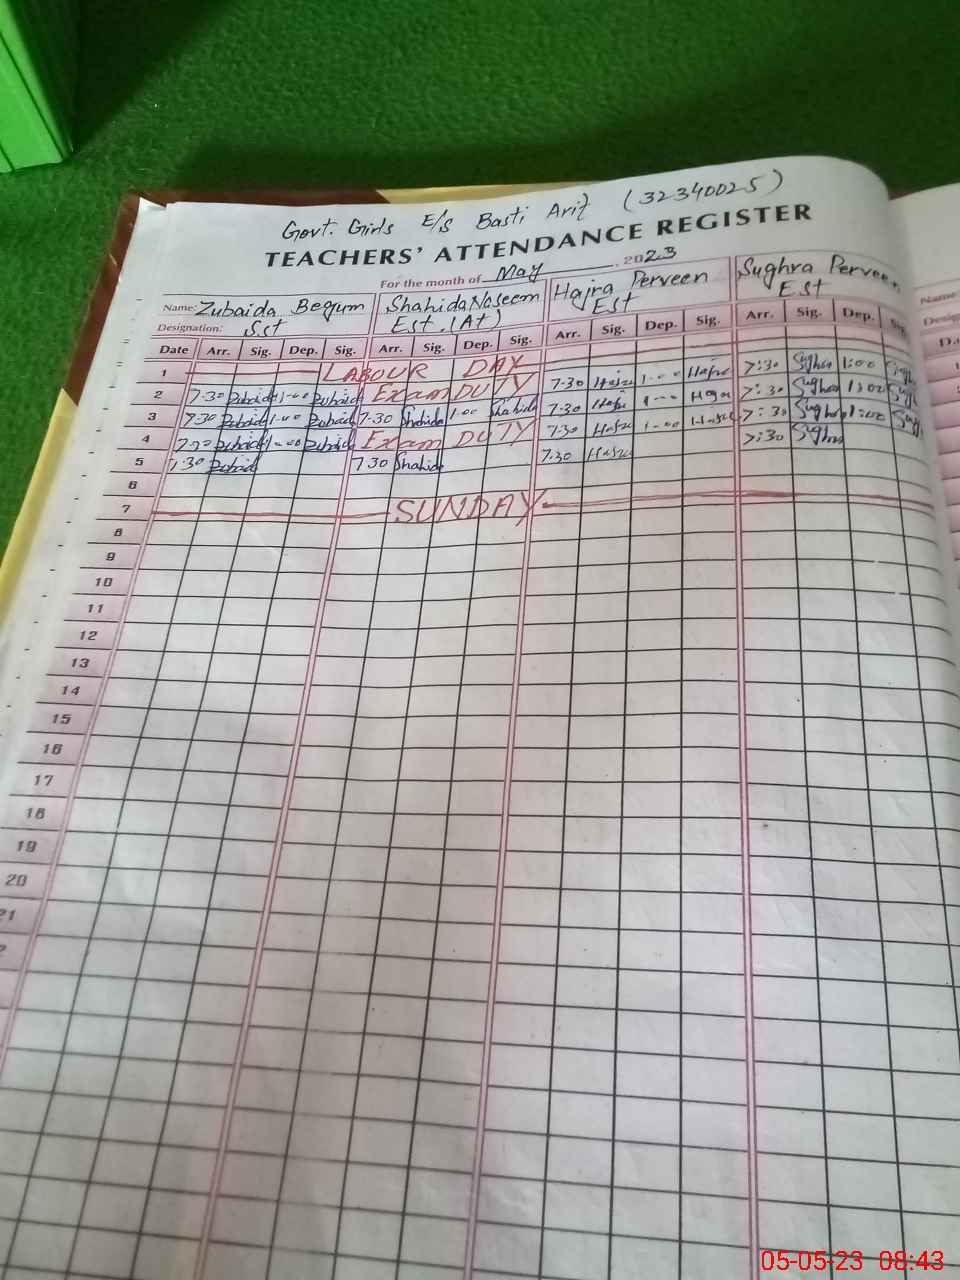 Govt. Girls E/S Basti Arif (32340025)
TEACHERS' ATTENDANCE REGISTER
For the month of May, 2023
Name: Zubaida Begum Shahida Naseem Hajra Perveen Sughra Perveen
Designation: Sst Est.(At) Est Est
Date Arr. Sig. Dep. Sig. Arr. Sig. Dep. Sig. Arr. Sig. Dep. Sig. Arr. Sig. Dep.
1 LABOUR DAY
2 7-30 Zubaida 1-00 Zubaida Exam DUTY 7-30 Hajra 1-00 Hajra 7:30 Sughra 1:00 Sughra
3 7-30 Zubaida 1-00 Zubaida 7-30 Shahida 1-00 Shahida 7-30 Hajra 1-00 Hajra 7:30 Sughra 1:00 Sughra
4 7-30 Zubaida 1-00 Zubaida Exam DUTY 7-30 Hajra 1-00 Hajra 7:30 Sughra 1:00 Sughra
5 7-30 Zubaida 7-30 Shahida 7-30 Hajra 7:30 Sughra
6
7 SUNDAY
8
9
10
11
12
13
14
15
16
17
18
19
20
21
Name:
05-05-23 08:43